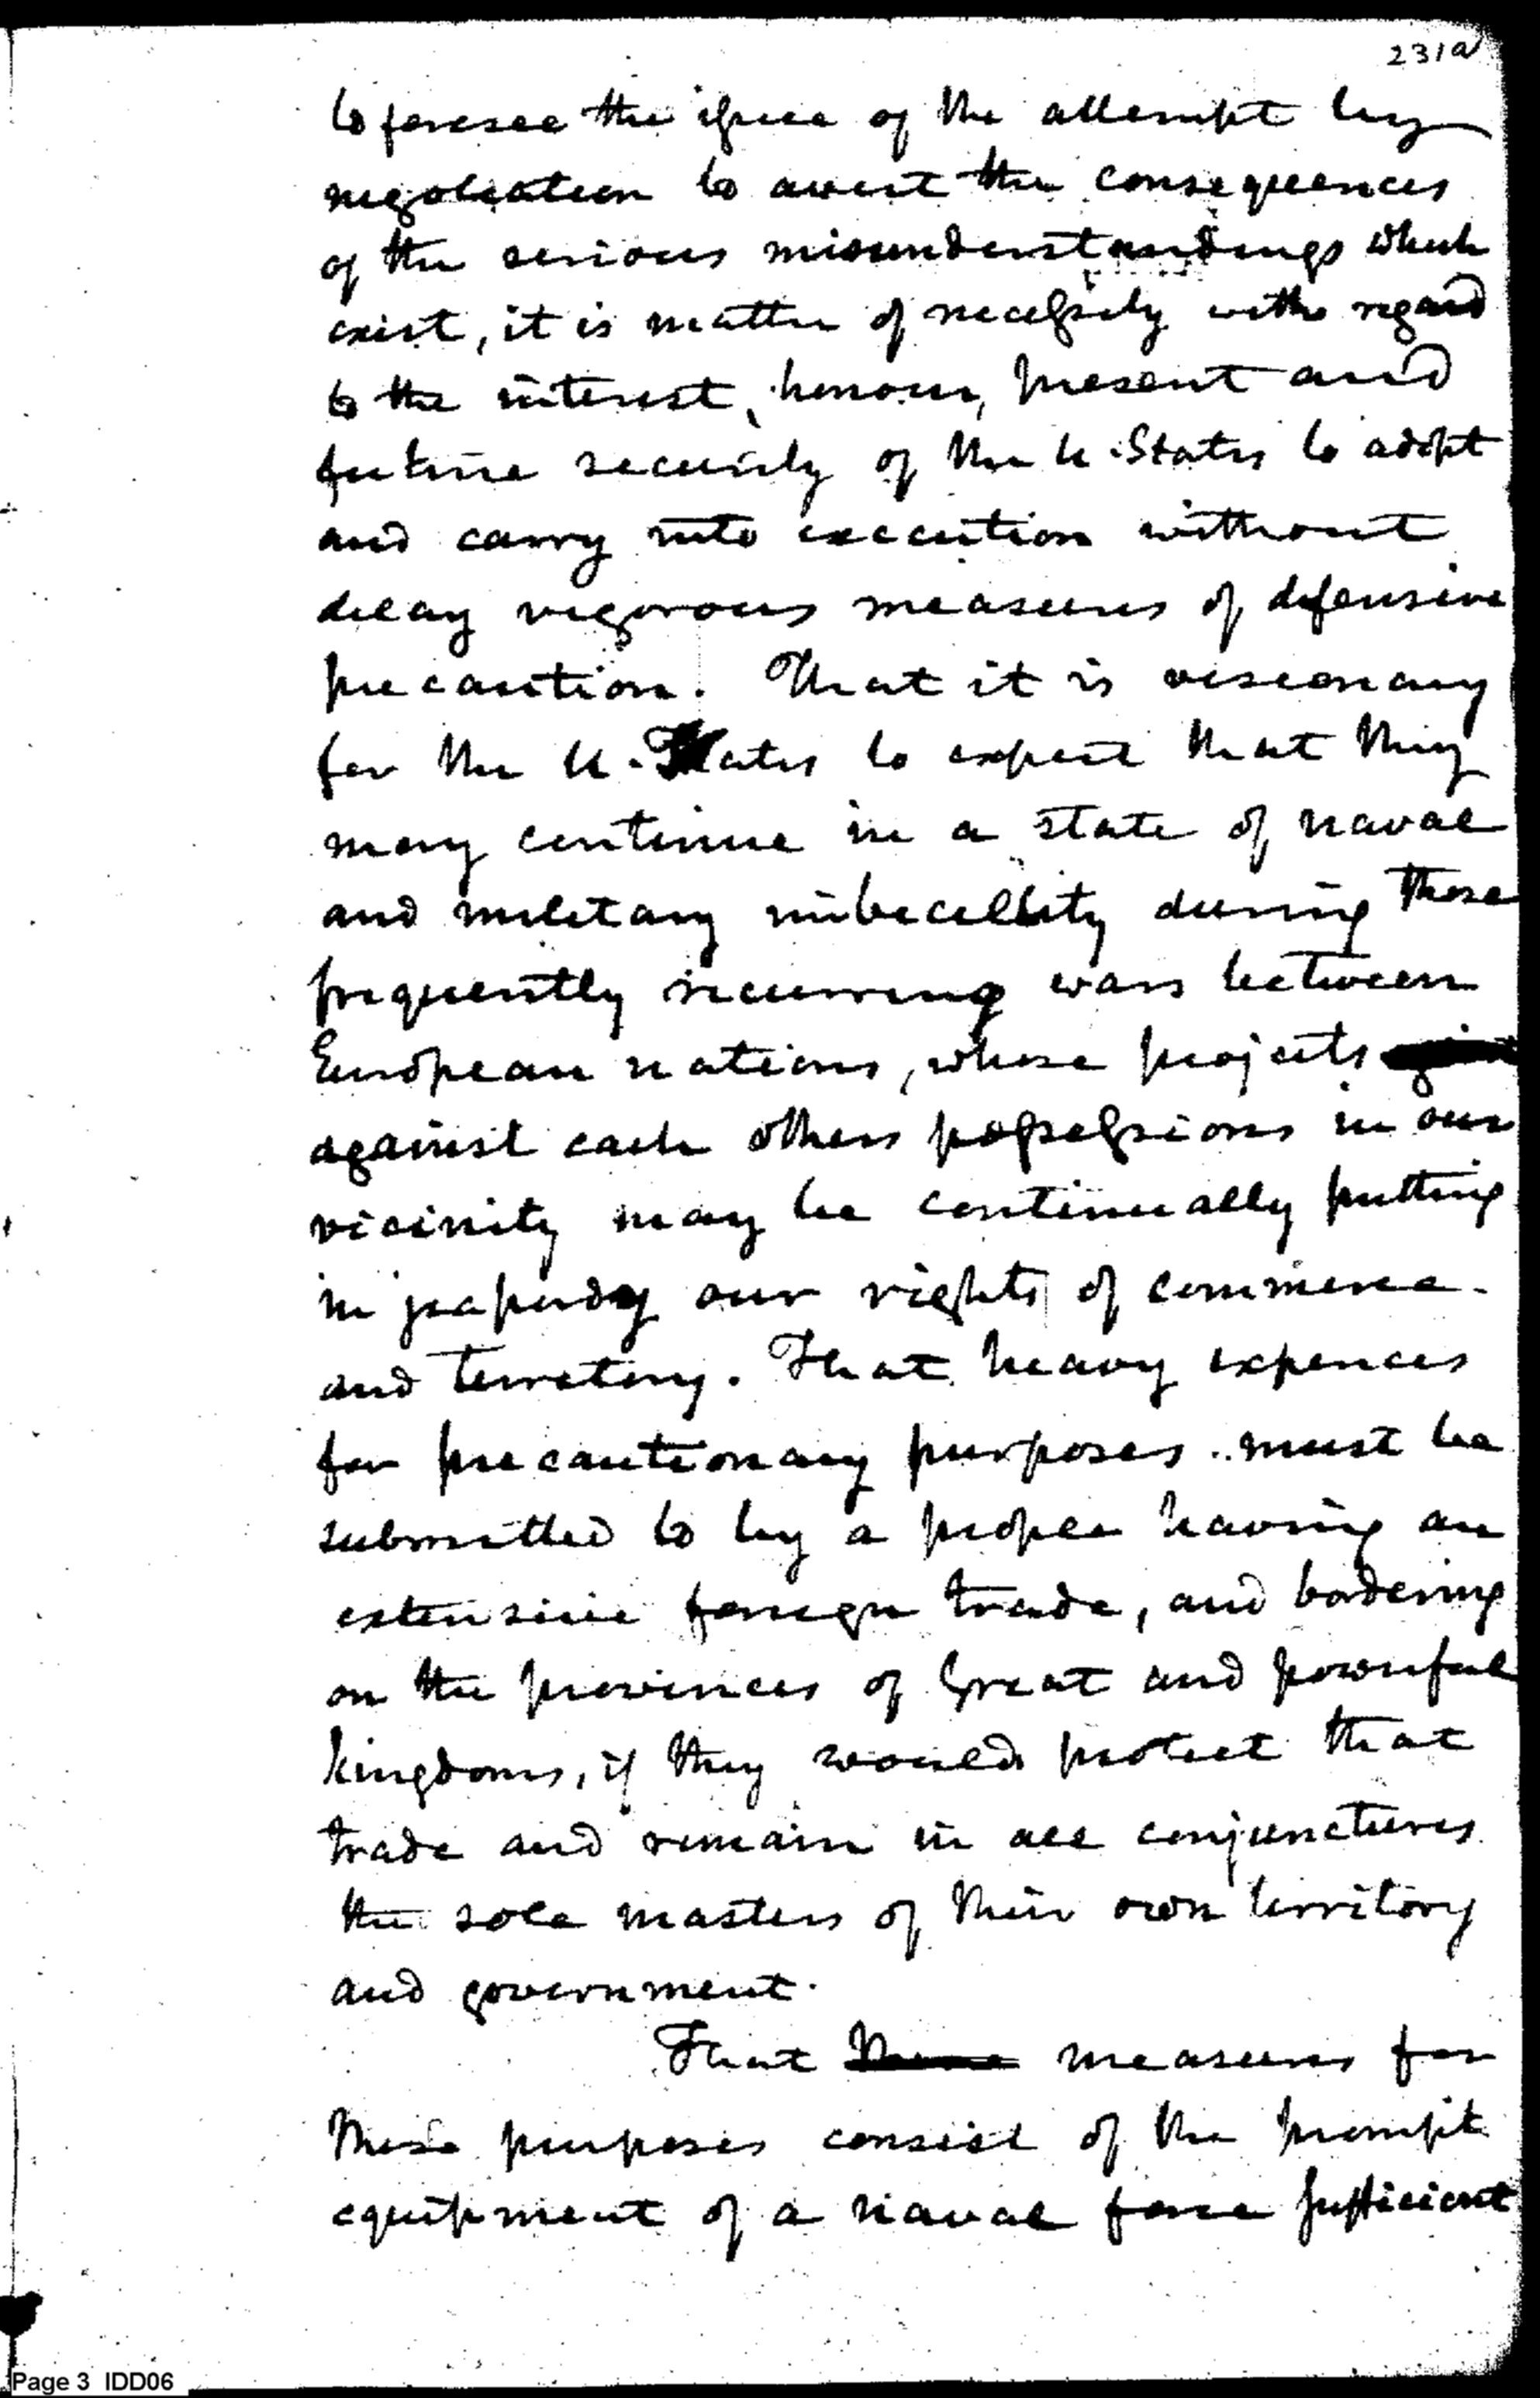 231a
to foresee the issue of the attempt by
negotiation to avert the consequences
of the serious misunderstandings which
exist, it is matter of necessity with regard
to the interest, honour, present and
future security of the U. States to adopt
and carry into execution without
delay vigorous measures of defensive
precaution. That it is visionary
for the U. States to expect that they
may continue in a state of naval
and military imbecellity during those
frequently recurring wars between
European nations, whose projects
against each others possessions in our
vicinity may be continually putting
in jeapordy our rights of commerce
and territory. That heavy expences
for precautionary purposes must be
submitted to by a people having an
extensive foreign trade, and bordering
on the provinces of Great and powerful
kingdoms, if they would protect that
trade and remain in all conjunctures
the sole masters of their own territory
and government.
That these measures for
these purposes consist of the prompt
equipment of a naval force sufficient
Page 3 IDD06